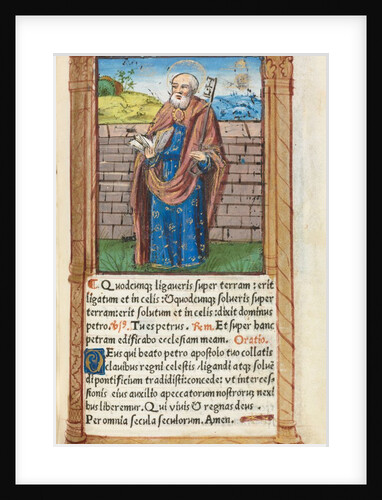 ¶ Quodcunq; ligaveris super terram : erit
ligatum et in celis : & quodcunq; solveris super
terram : erit solutum et in celis : dixit dominus
petro. Vsꝰ. Tu es petrus. Rem. Et super hanc
petram edificabo ecclesiam meam. Oratio.
Deus qui beato petro apostolo tuo collatis
clavibus regni celestis ligandi atq; solvē
di pontificium tradidisti : concede : vt interces
sionis eius auxilio a peccatorum nostrorum nexi
bus liberemur. Qui vivis & regnas deus.
Per omnia secula seculorum. Amen.